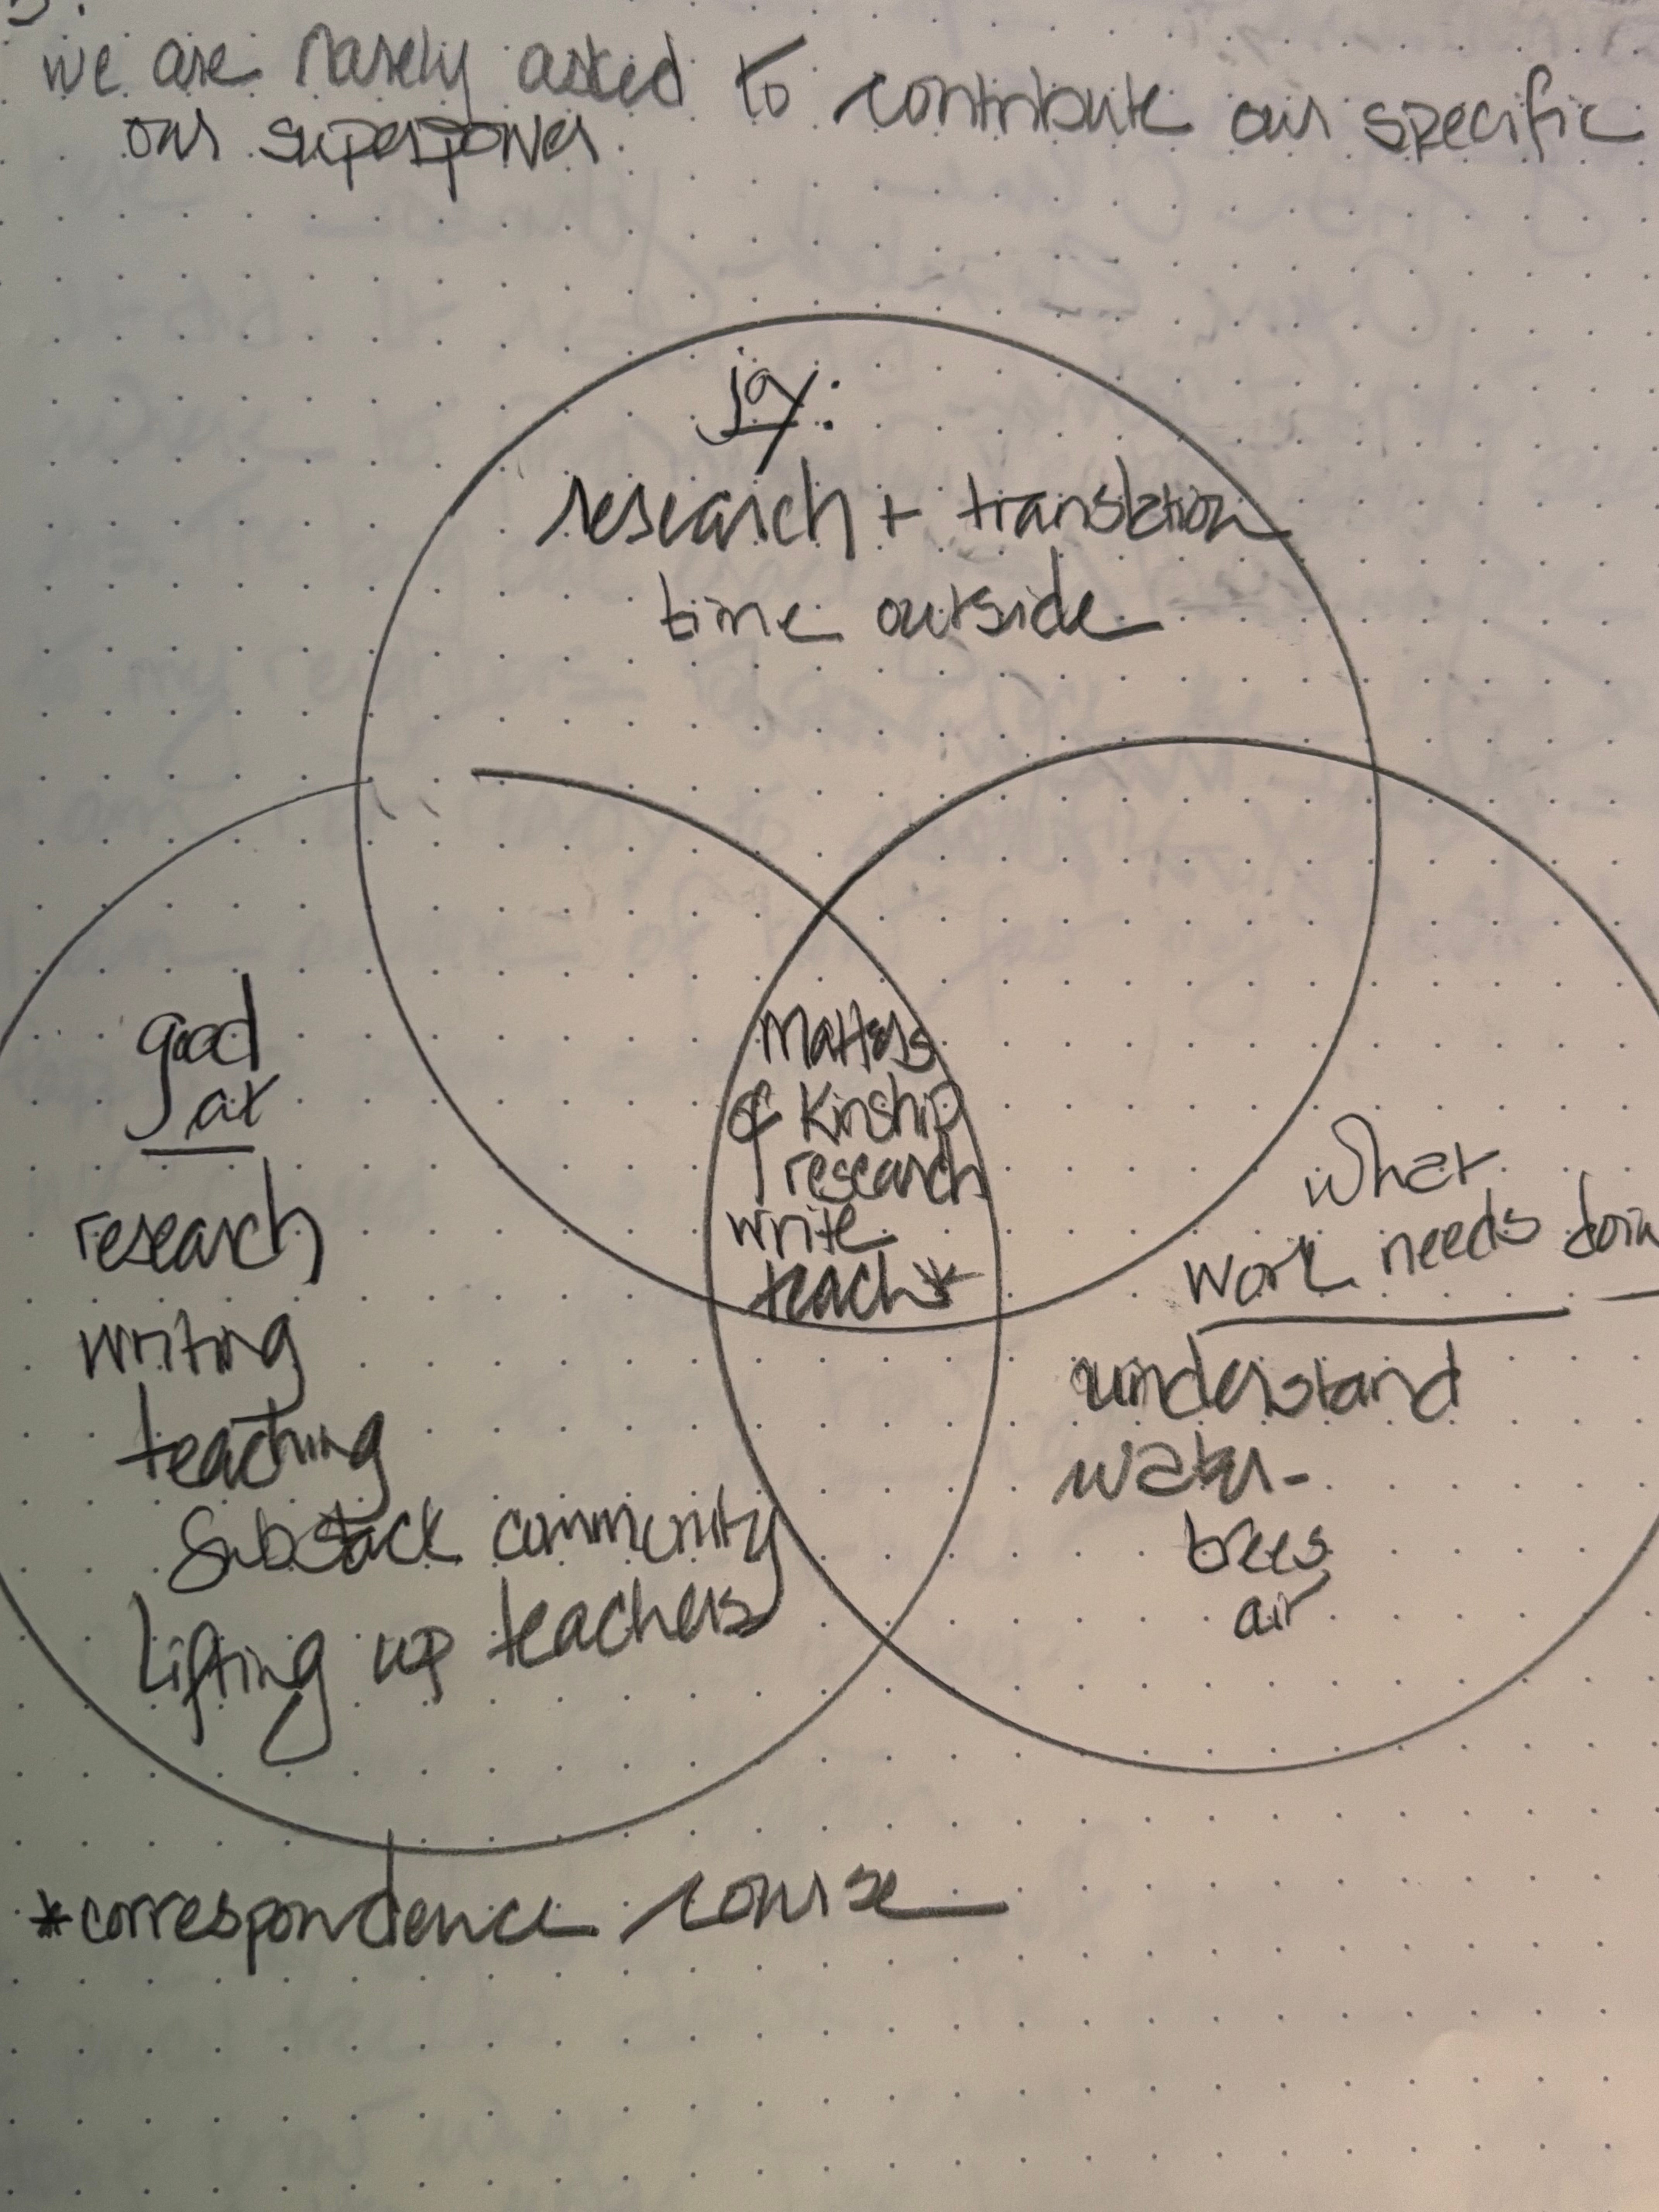 we are rarely asked to contribute our specific
our superpower.
joy:
research + translation
time outside
good
at
research
writing
teaching
Substack community
Lifting up teachers
Matters
of Kinship
research
write
teach*
what
work needs doin
understand
water-
trees
air
*correspondence course